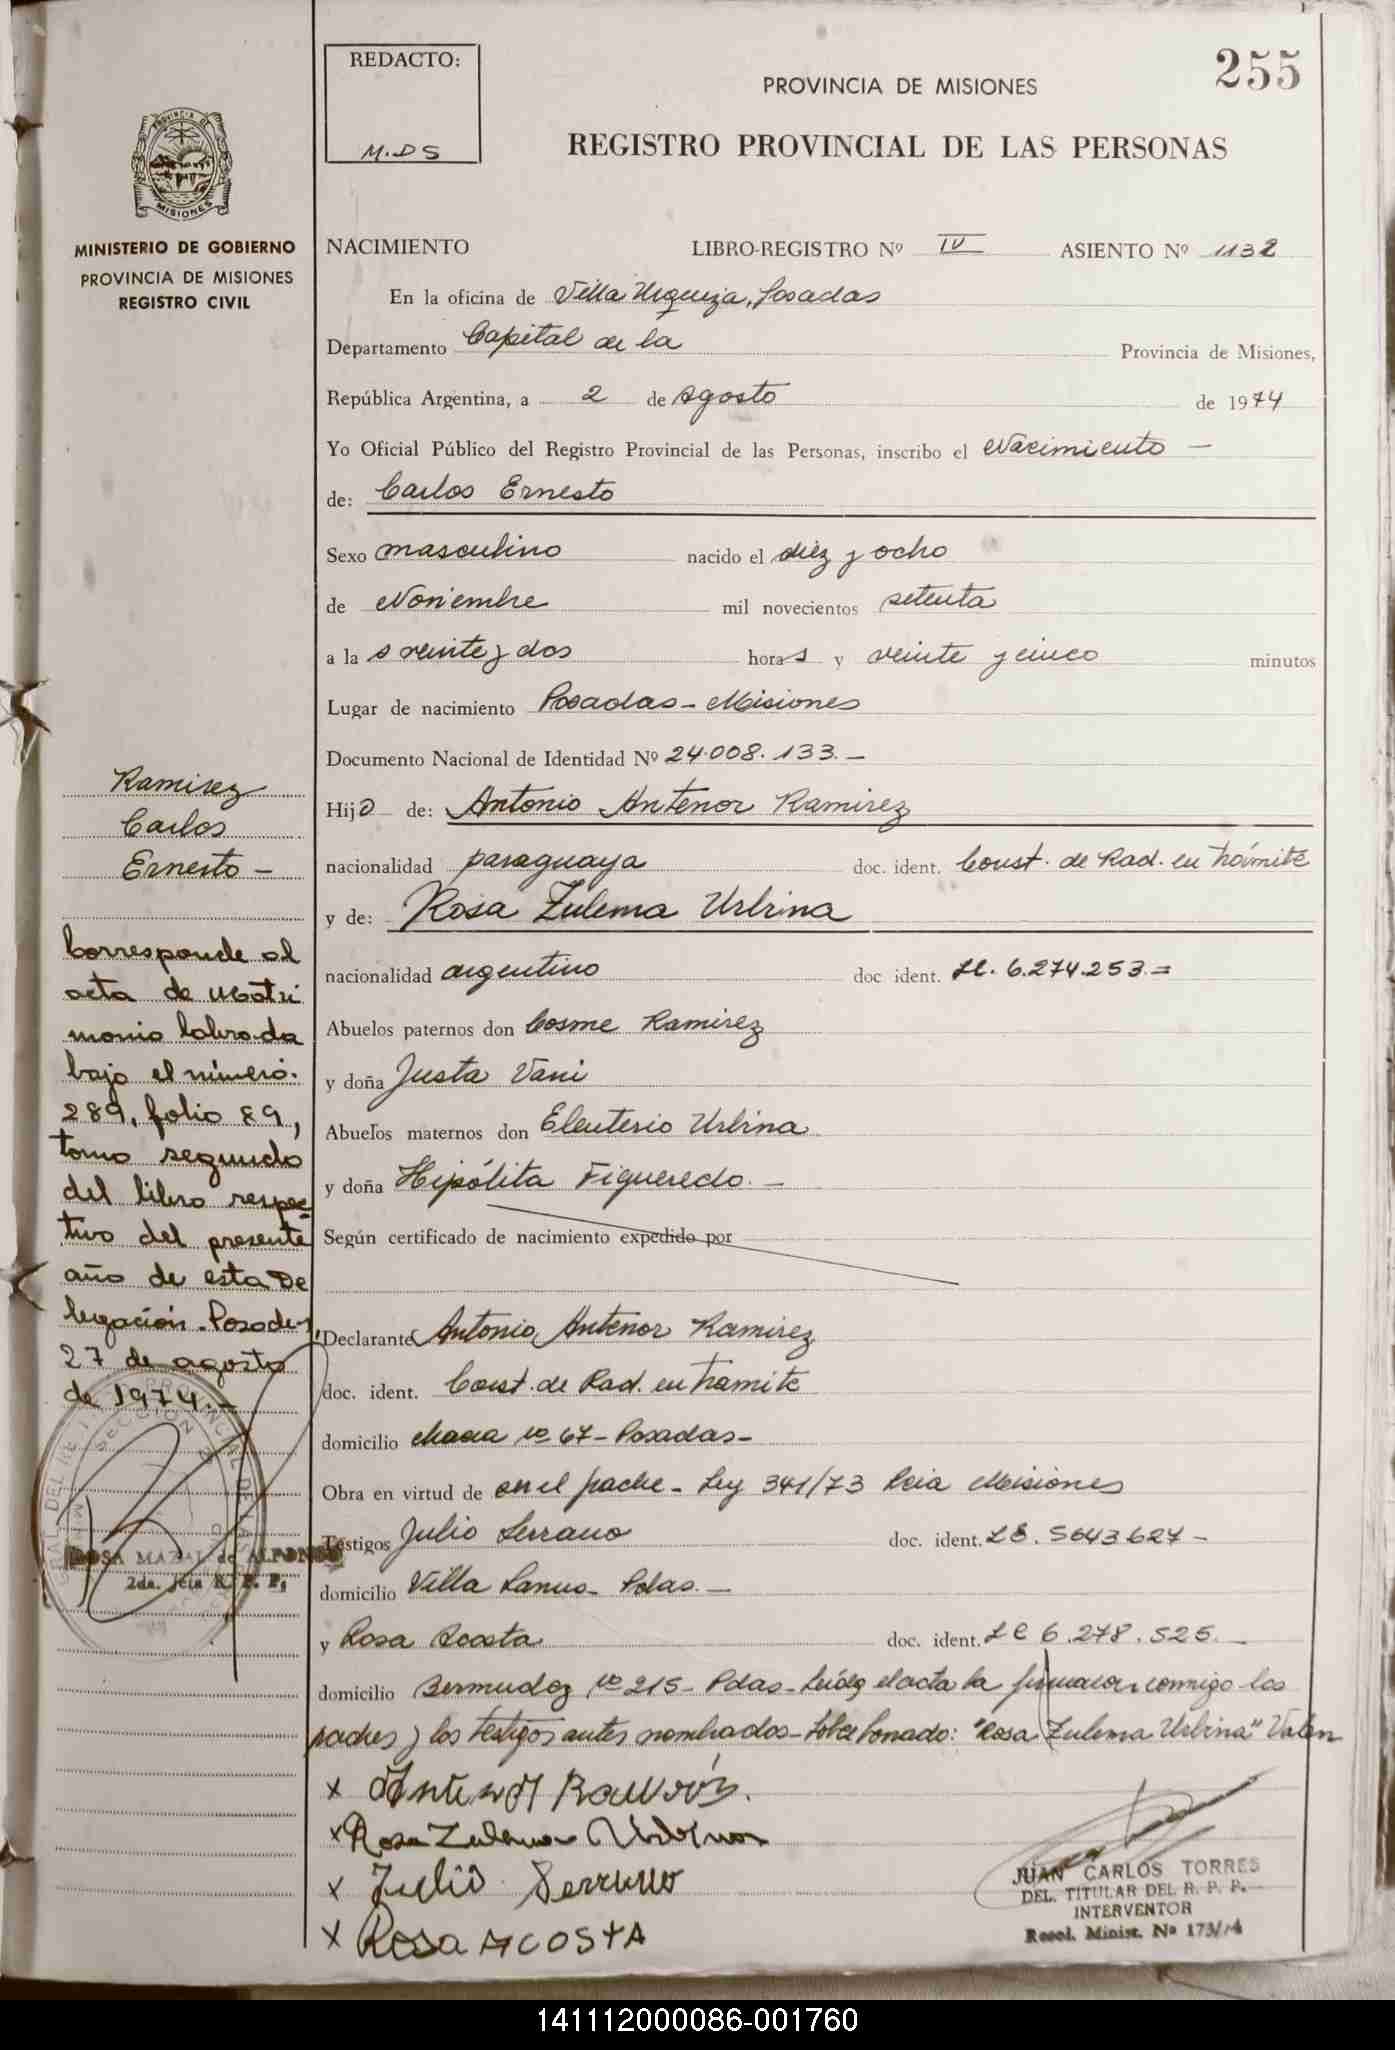 255
REDACTO:
M.DS
PROVINCIA DE MISIONES
REGISTRO PROVINCIAL DE LAS PERSONAS
PROVINCIA DE
MISIONES
MINISTERIO DE GOBIERNO
PROVINCIA DE MISIONES
REGISTRO CIVIL
NACIMIENTO LIBRO-REGISTRO Nº IV ASIENTO Nº 1132
En la oficina de Villa Urquiza, Posadas
Departamento Capital de la Provincia de Misiones,
República Argentina, a 2 de Agosto de 1974
Yo Oficial Público del Registro Provincial de las Personas, inscribo el Nacimiento —
de: Carlos Ernesto
Sexo masculino nacido el diez y ocho
de Noviembre mil novecientos setenta
a la s veinte y dos horas y veinte y cinco minutos
Lugar de nacimiento Posadas - Misiones
Documento Nacional de Identidad Nº 24.008.133.-
Hijo de: Antonio Antenor Ramirez
nacionalidad paraguaya doc. ident. Const. de Rad. en trámite
y de: Rosa Zulema Urbina
nacionalidad argentino doc ident. LC. 6.274.253.=
Abuelos paternos don Cosme Ramirez
y doña Justa Vani
Abuelos maternos don Eleuterio Urbina
y doña Hipólita Figueredo. -
Según certificado de nacimiento expedido por
Declarante Antonio Antenor Ramirez
doc. ident. Const. de Rad. en tramite
domicilio chacra Nº 67 - Posadas -
Obra en virtud de en el padre - Ley 341/73 Pcia Misiones
Testigos Julio Serrano doc. ident. LE. 5643627 -
domicilio Villa Lanus - Pdas. -
y Rosa Acosta doc. ident. LC 6.278.525. -
domicilio Bermudez Nº 215 - Pdas - Leída el acta la firmaron conmigo los
padres y los testigos antes nombrados - Sobre borrado: "Rosa Zulema Urbina" Valen
x Antenor Ramirez.
x Rosa Zulema Urbina
x Julio Serrano
x Rosa ACOSTA
JUAN CARLOS TORRES
DEL. TITULAR DEL R. P. P.
INTERVENTOR
Resol. Minist. Nº 173/74
Ramirez
Carlos
Ernesto -
Corresponde al
acta de Matri
monio labrada
bajo el número.
289, folio 89,
tomo segundo
del libro respec
tivo del presente
año de esta De
legación. Posadas,
27 de agosto
de 1974.-
ROSA MAZAL de ALFONSO
2da. Jefa R. P. P.
141112000086-001760